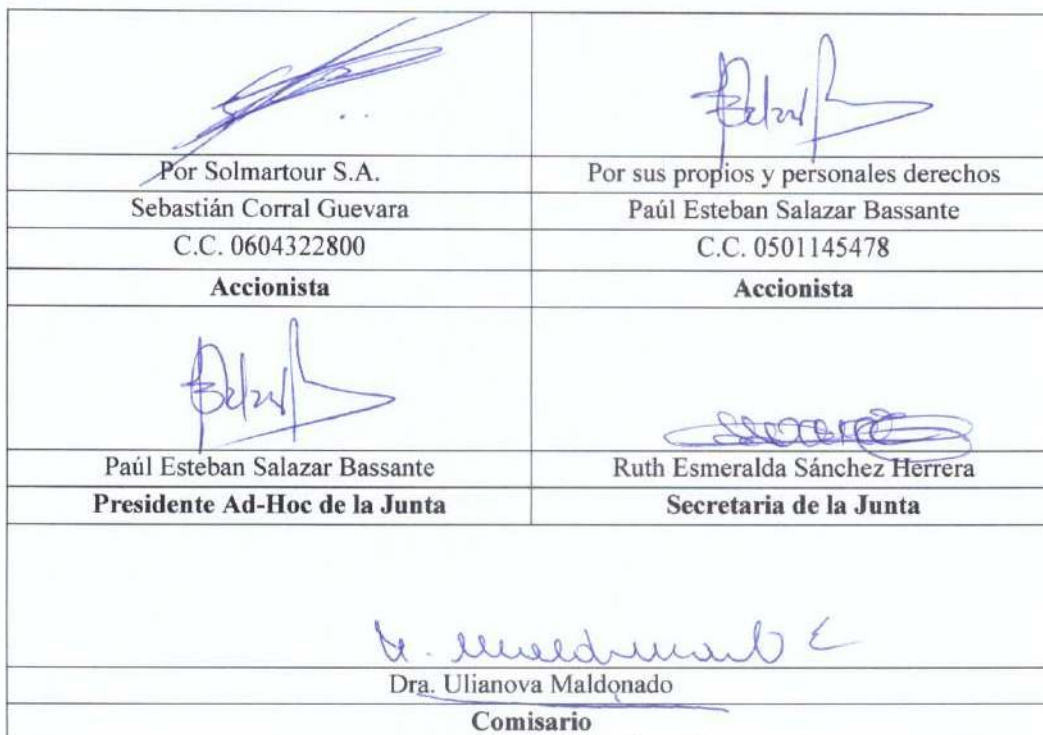 Por Solmartour S.A.
Por sus propios y personales derechos
Sebastián Corral Guevara
Paúl Esteban Salazar Bassante
C.C. 0604322800
C.C. 0501145478
Accionista
Accionista
Paúl Esteban Salazar Bassante
Ruth Esmeralda Sánchez Herrera
Presidente Ad-Hoc de la Junta
Secretaria de la Junta
Dra. Ulianova Maldonado
Comisario